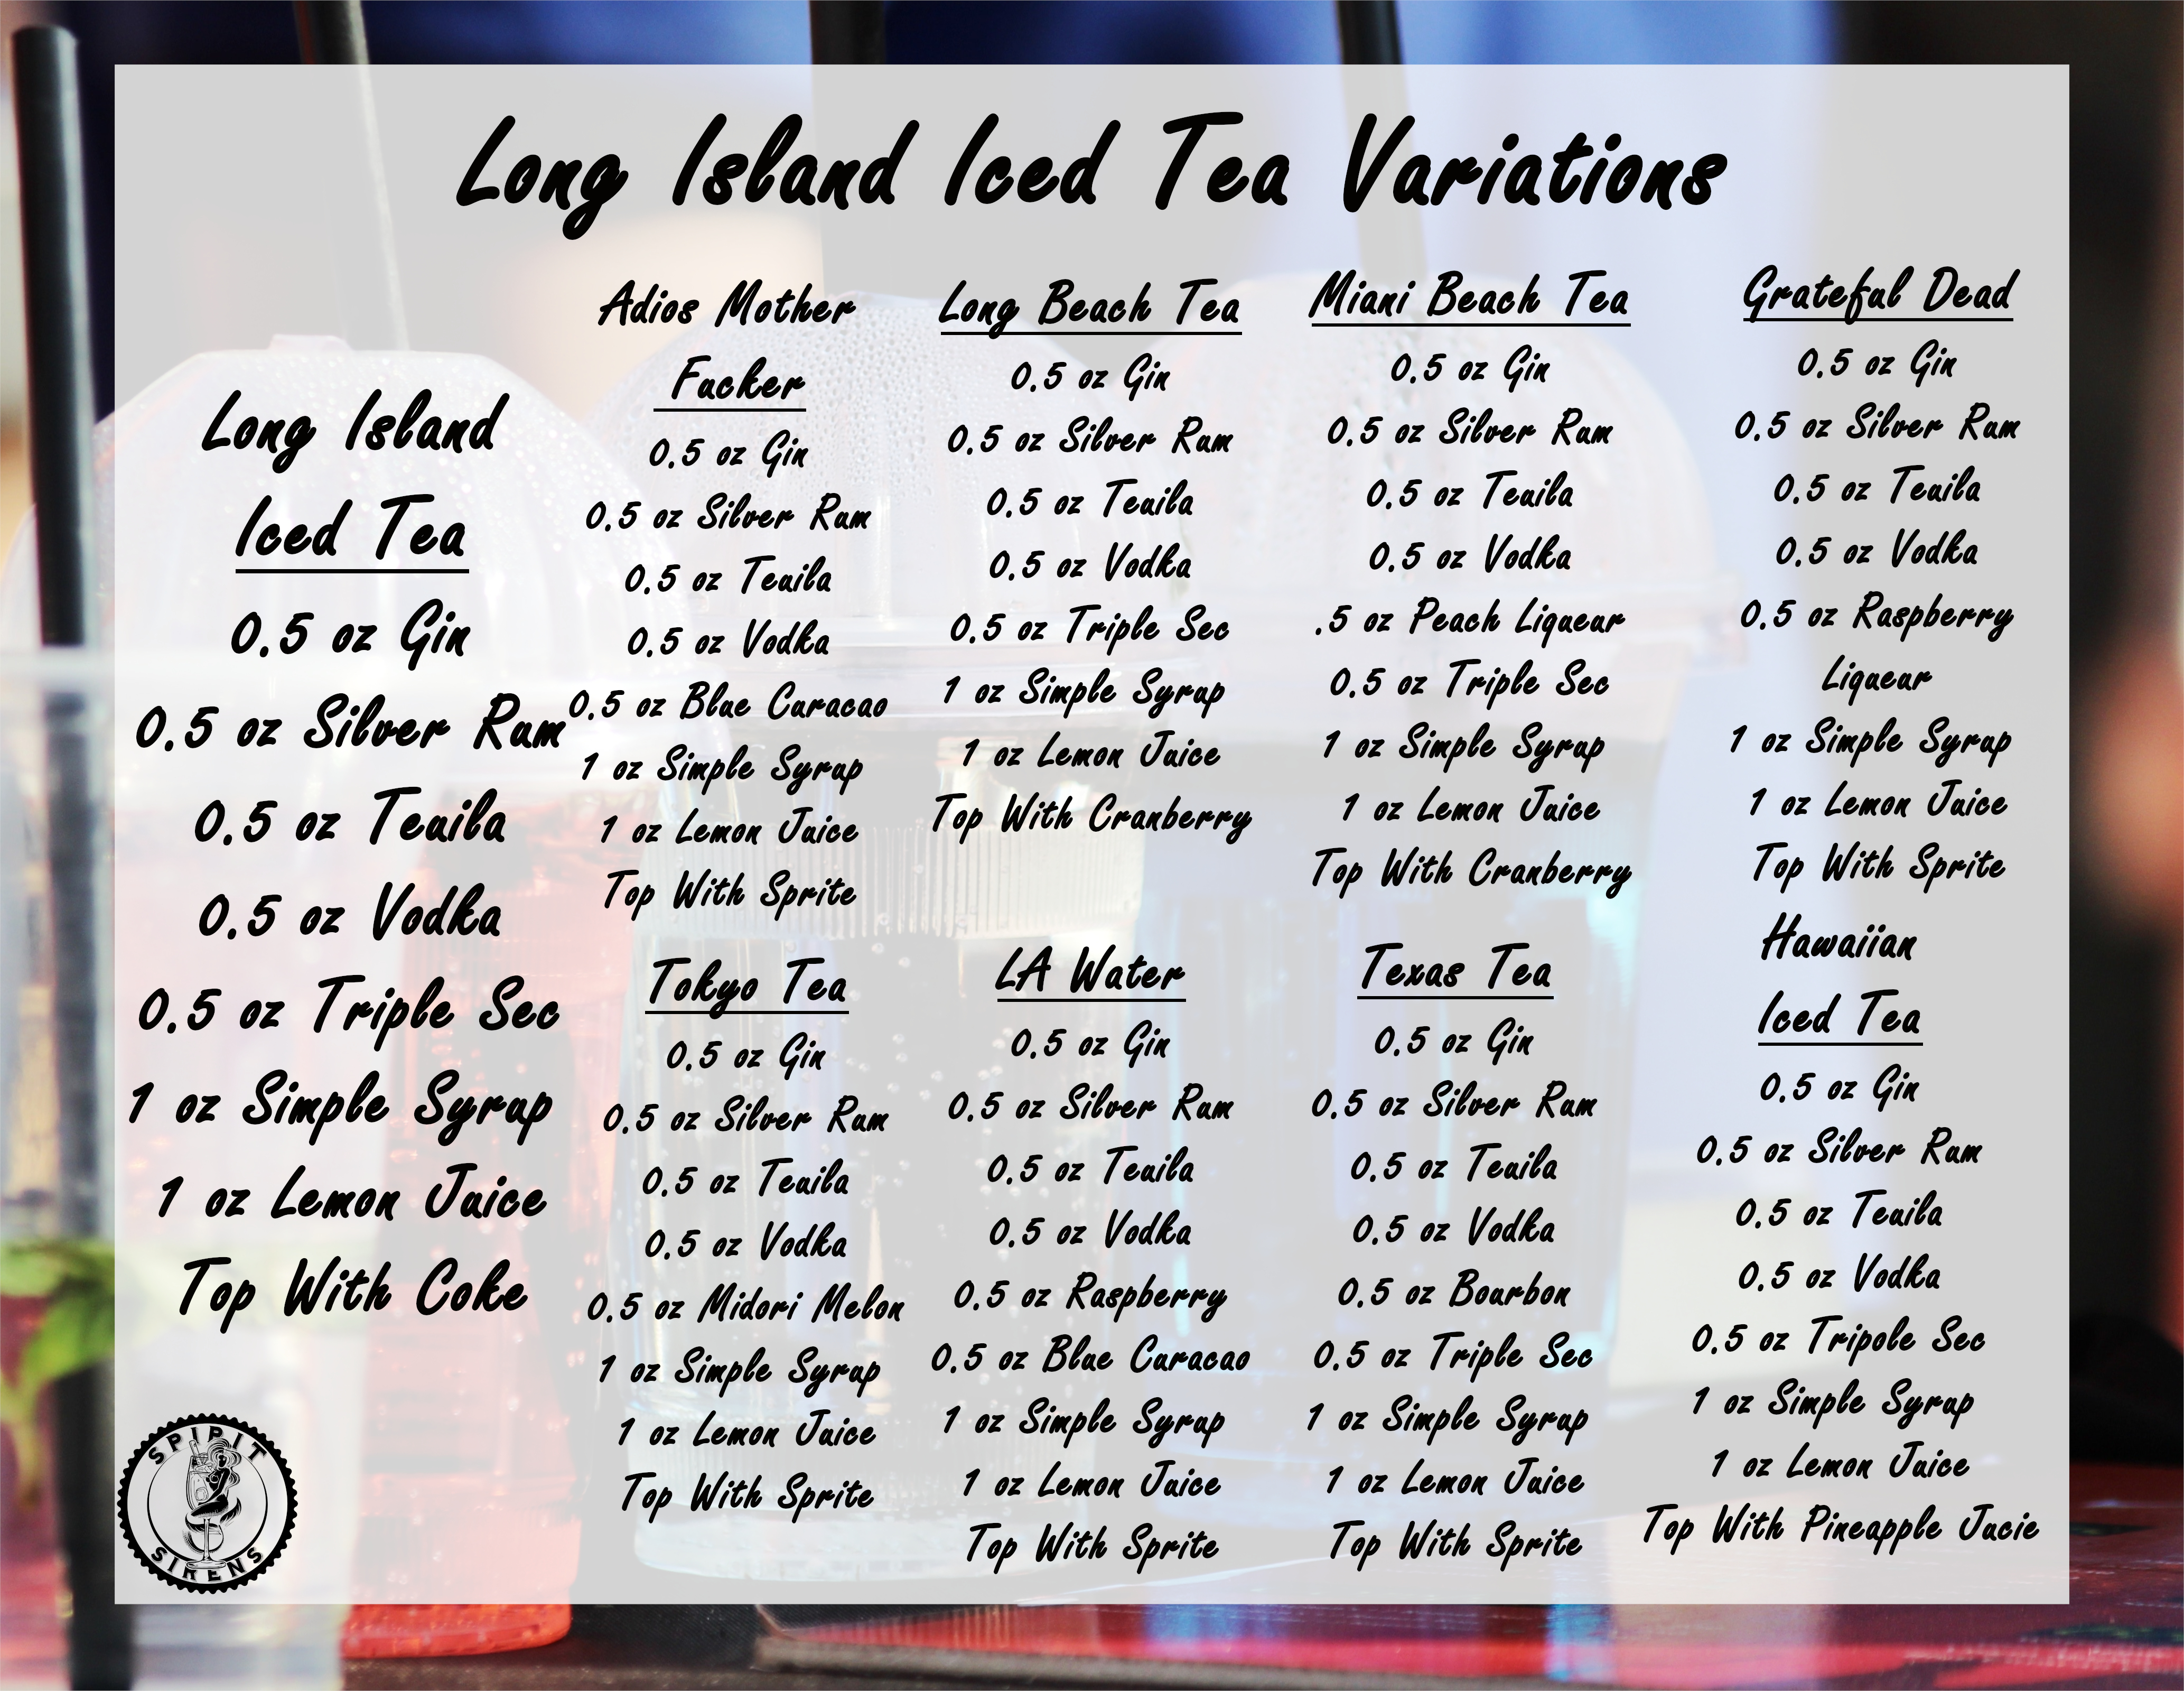 Long Island Iced Tea Variations
Long Island
Iced Tea
0.5 oz Gin
0.5 oz Silver Rum
0.5 oz Teuila
0.5 oz Vodka
0.5 oz Triple Sec
1 oz Simple Syrup
1 oz Lemon Juice
Top With Coke
Adios Mother
Fucker
0.5 oz Gin
0.5 oz Silver Rum
0.5 oz Teuila
0.5 oz Vodka
0.5 oz Blue Curacao
1 oz Simple Syrup
1 oz Lemon Juice
Top With Sprite
Tokyo Tea
0.5 oz Gin
0.5 oz Silver Rum
0.5 oz Teuila
0.5 oz Vodka
0.5 oz Midori Melon
1 oz Simple Syrup
1 oz Lemon Juice
Top With Sprite
Long Beach Tea
0.5 oz Gin
0.5 oz Silver Rum
0.5 oz Teuila
0.5 oz Vodka
0.5 oz Triple Sec
1 oz Simple Syrup
1 oz Lemon Juice
Top With Cranberry
LA Water
0.5 oz Gin
0.5 oz Silver Rum
0.5 oz Teuila
0.5 oz Vodka
0.5 oz Raspberry
0.5 oz Blue Curacao
1 oz Simple Syrup
1 oz Lemon Juice
Top With Sprite
Miani Beach Tea
0.5 oz Gin
0.5 oz Silver Rum
0.5 oz Teuila
0.5 oz Vodka
.5 oz Peach Liqueur
0.5 oz Triple Sec
1 oz Simple Syrup
1 oz Lemon Juice
Top With Cranberry
Texas Tea
0.5 oz Gin
0.5 oz Silver Rum
0.5 oz Teuila
0.5 oz Vodka
0.5 oz Bourbon
0.5 oz Triple Sec
1 oz Simple Syrup
1 oz Lemon Juice
Top With Sprite
Grateful Dead
0.5 oz Gin
0.5 oz Silver Rum
0.5 oz Teuila
0.5 oz Vodka
0.5 oz Raspberry
Liqueur
1 oz Simple Syrup
1 oz Lemon Juice
Top With Sprite
Hawaiian
Iced Tea
0.5 oz Gin
0.5 oz Silver Rum
0.5 oz Teuila
0.5 oz Vodka
0.5 oz Tripole Sec
1 oz Simple Syrup
1 oz Lemon Juice
Top With Pineapple Jucie
SPIRIT
SIRENS